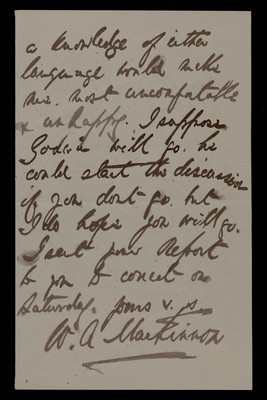 a knowledge of either
language would make
me most uncomfortable
& unhappy. I suppose
Godwin will go. he
could start the discussion
if you dont go. but
I do hope you will go.
I sent your Report
to you to correct on
Saturday. yours v. sy
W. A Mackinnon